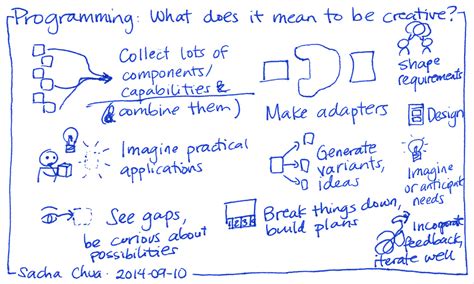 Programming: What does it mean to be creative?
Collect lots of
components/
capabilities &
(combine them)
Make adapters
shape
requirements
Design
Imagine practical
applications
Generate
variants,
ideas
Imagine
or anticipate
needs
See gaps,
be curious about
possibilities
Break things down,
build plans
Incorporate
feedback,
iterate well
Sacha Chua · 2014-09-10